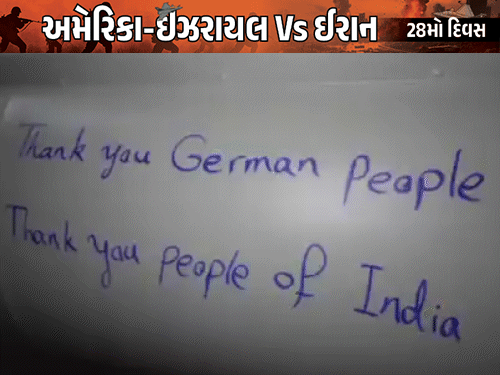 અમેરિકા-ઇઝરાયલ Vs ઈરાન 28મો દિવસ
Thank you German People
Thank you people of India